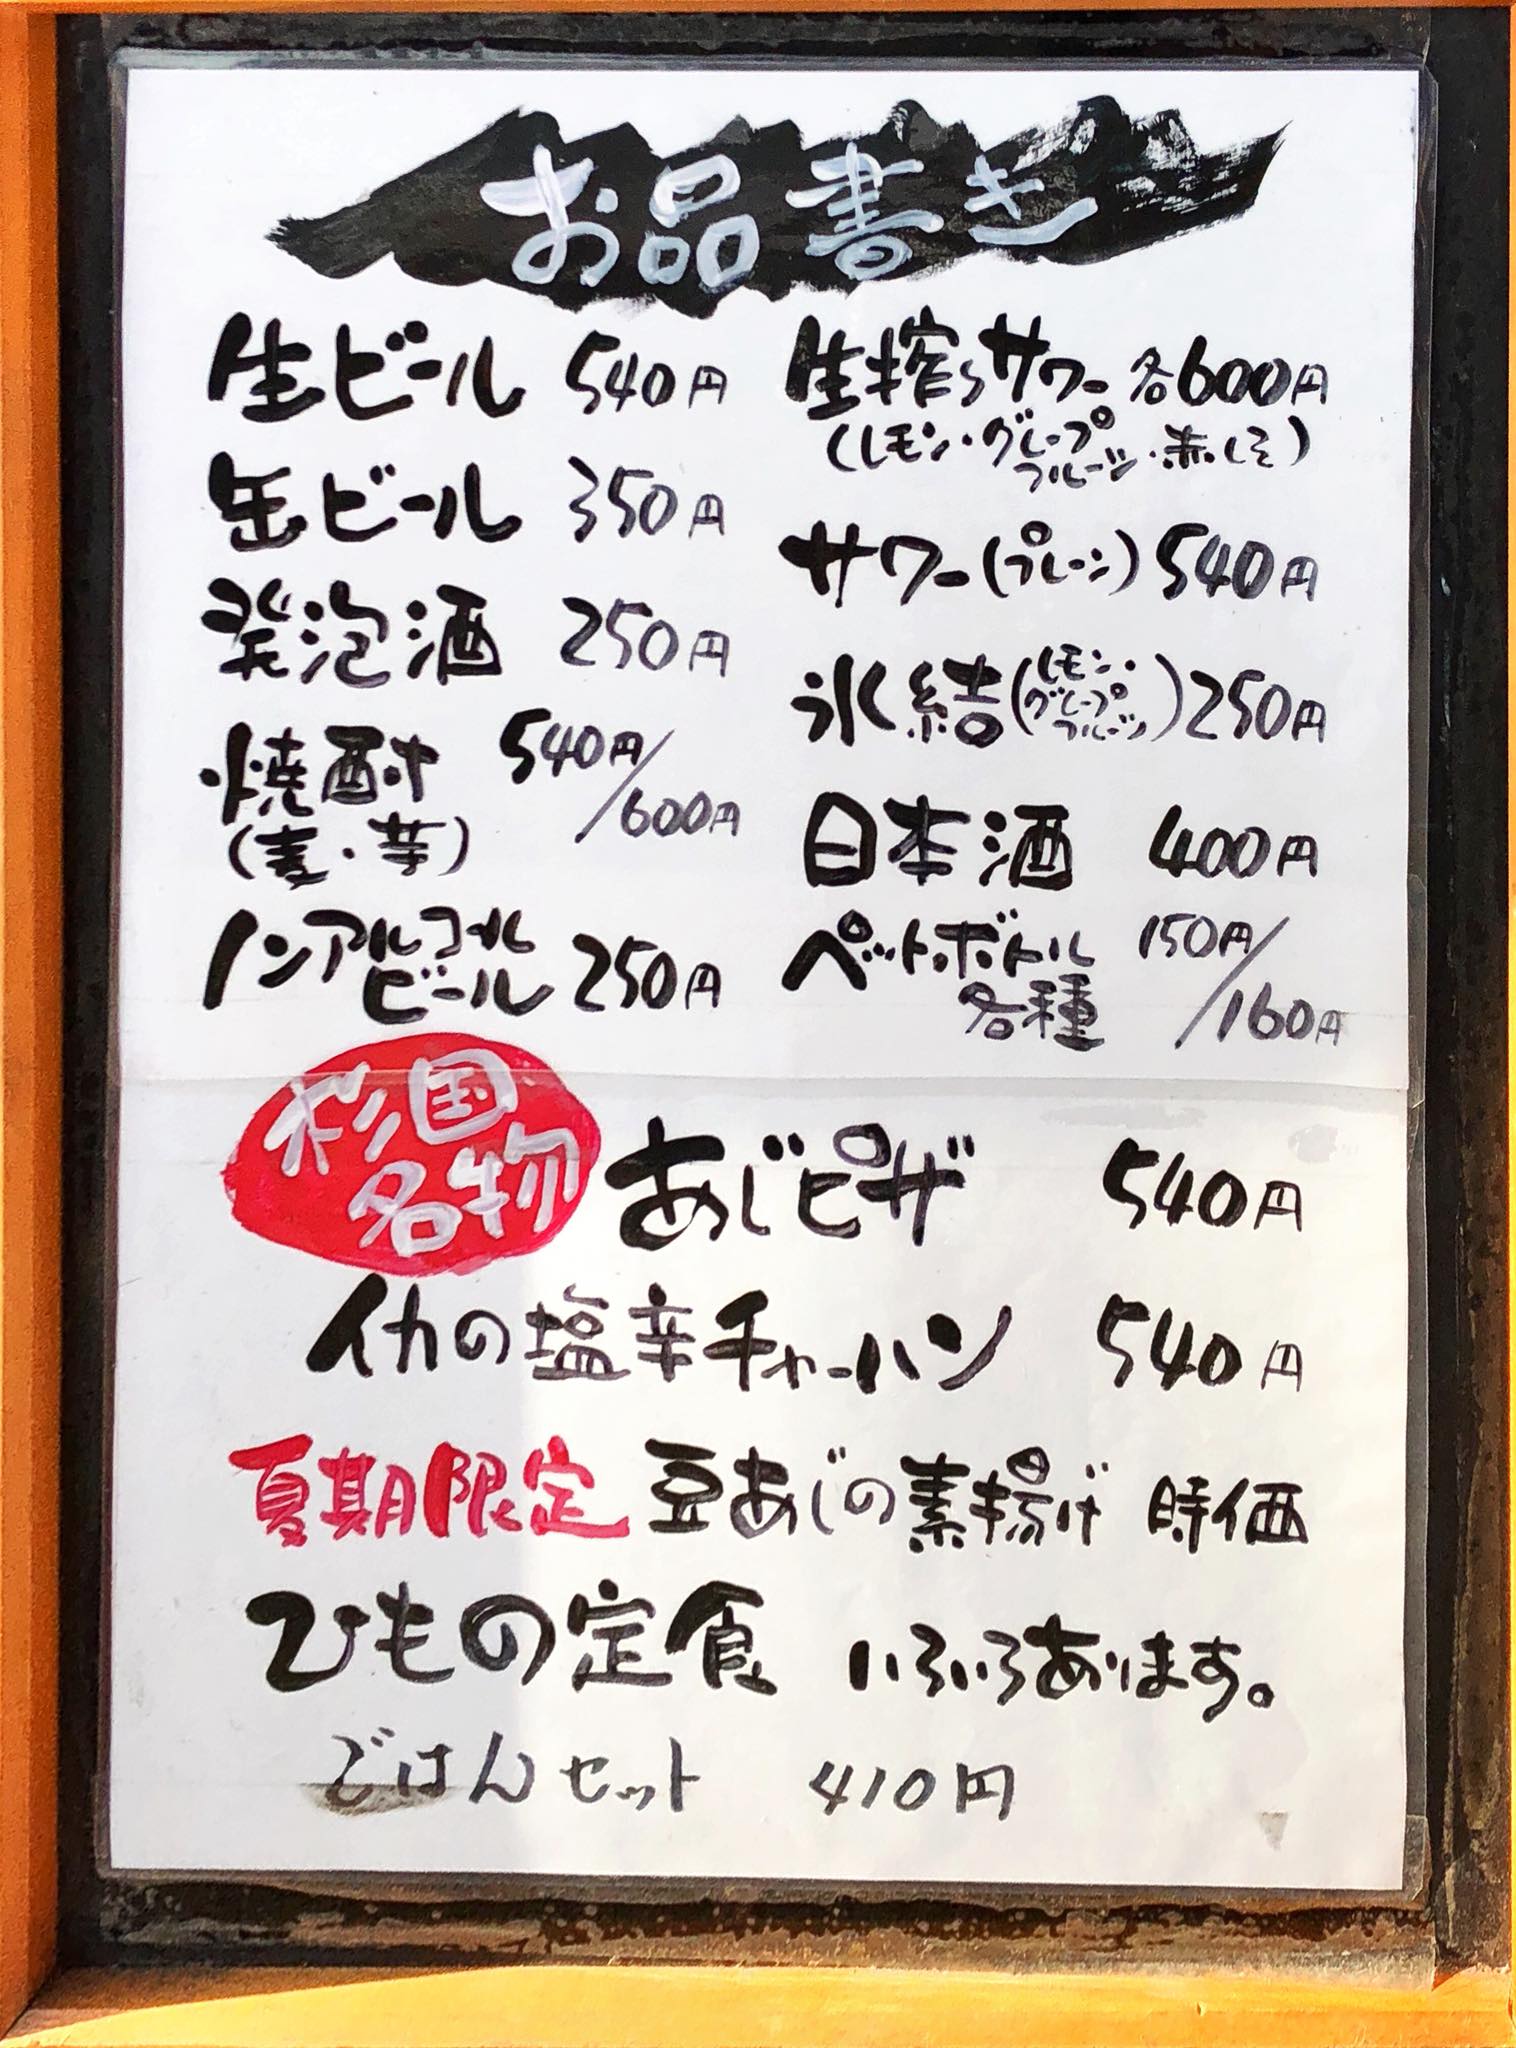 お品書き
生ビール 540円
缶ビール 350円
発泡酒 250円
焼酎 540円/600円
(麦・芋)
ノンアルコール
ビール 250円
生搾りサワー 各600円
(レモン・グレープ
フルーツ・赤しそ)
サワー(プレーン) 540円
氷結(レモン・
グレープ
フルーツ) 250円
日本酒 400円
ペットボトル 150円/160円
各種
杉国
名物
あじピザ 540円
イカの塩辛チャーハン 540円
夏期限定 豆あじの素揚げ 時価
ひもの定食 いろいろあります。
ごはんセット 410円